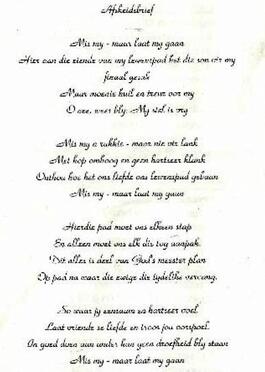 Afskeidsbrief
Mis my - maar laat my gaan
Hier aan die einde van my lewenspad het die son vir my
finaal gesak
Maar moenie huil en treur oor my
O nee, wees bly. My siel is vry
Mis my 'n rukkie - maar nie vir lank
Met kop omhoog en geen hartseer klank
Onthou hoe het ons liefde ons lewenspad gebaan
Mis my - maar laat my gaan
Hierdie pad moet ons elkeen stap
En alleen moet ons elk dit tog aanpak
Dit alles is deel van God's meester plan
Op pad na waar die ewige die tydelike vervang.
So waar jy eensaam en hartseer voel
Laat vriende se liefde en troos jou oorspoel.
In goed doen aan ander kan geen droefheid bly staan
Mis my - maar laat my gaan